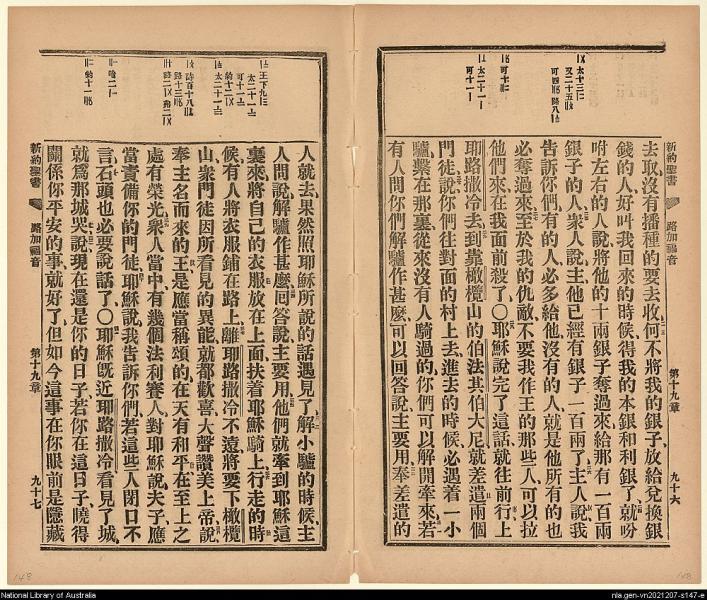 新約聖書
路加福音
第十九章
九十六
去取沒有播種的要去收何不將我的銀子放給兌換銀
錢的人好叫我回來的時候得我的本銀和利銀了就吩
咐左右的人說將他的十兩銀子奪過來給那有一百兩
銀子的人衆人說主他已經有銀子一百兩了主人說我
告訴你們有的人必多給他沒有的人就是他所有的也
必奪過來至於我的仇敵不要我作王的那些人可以拉
他們來在我面前殺了〇耶穌說完了這話就往前行上
耶路撒冷去到靠橄欖山的伯法其伯大尼就差遣兩個
門徒說你們往對面的村上去進去的時候必遇着一小
驢繫在那裏從來沒有人騎過的你們可以解開牽來若
有人問你們解驢作甚麼可以回答說主要用奉差遣的
人就去果然照耶穌所說的話遇見了解小驢的時候主
人問說解驢作甚麼回答說主要用他們就牽到耶穌這
裏來將自己的衣服放在上面扶着耶穌騎上行走的時
候有人將衣服鋪在路上離耶路撒冷不遠將要下橄欖
山衆門徒因所看見的異能就都歡喜大聲讚美上帝說
奉主名而來的王是應當稱頌的在天有和平在至上之
處有榮光衆人當中有幾個法利賽人對耶穌說夫子應
當責備你的門徒耶穌說我告訴你們若這些人閉口不
言石頭也必要說話了〇耶穌旣近耶路撒冷看見了城
就爲那城哭說現在還是你的日子若你在這日子曉得
關係你平安的事就好了但如今這事在你眼前是隱藏
新約聖書
路加福音
第十九章
九十七
National Library of Australia
nla.gen-vn2021207-s147-e